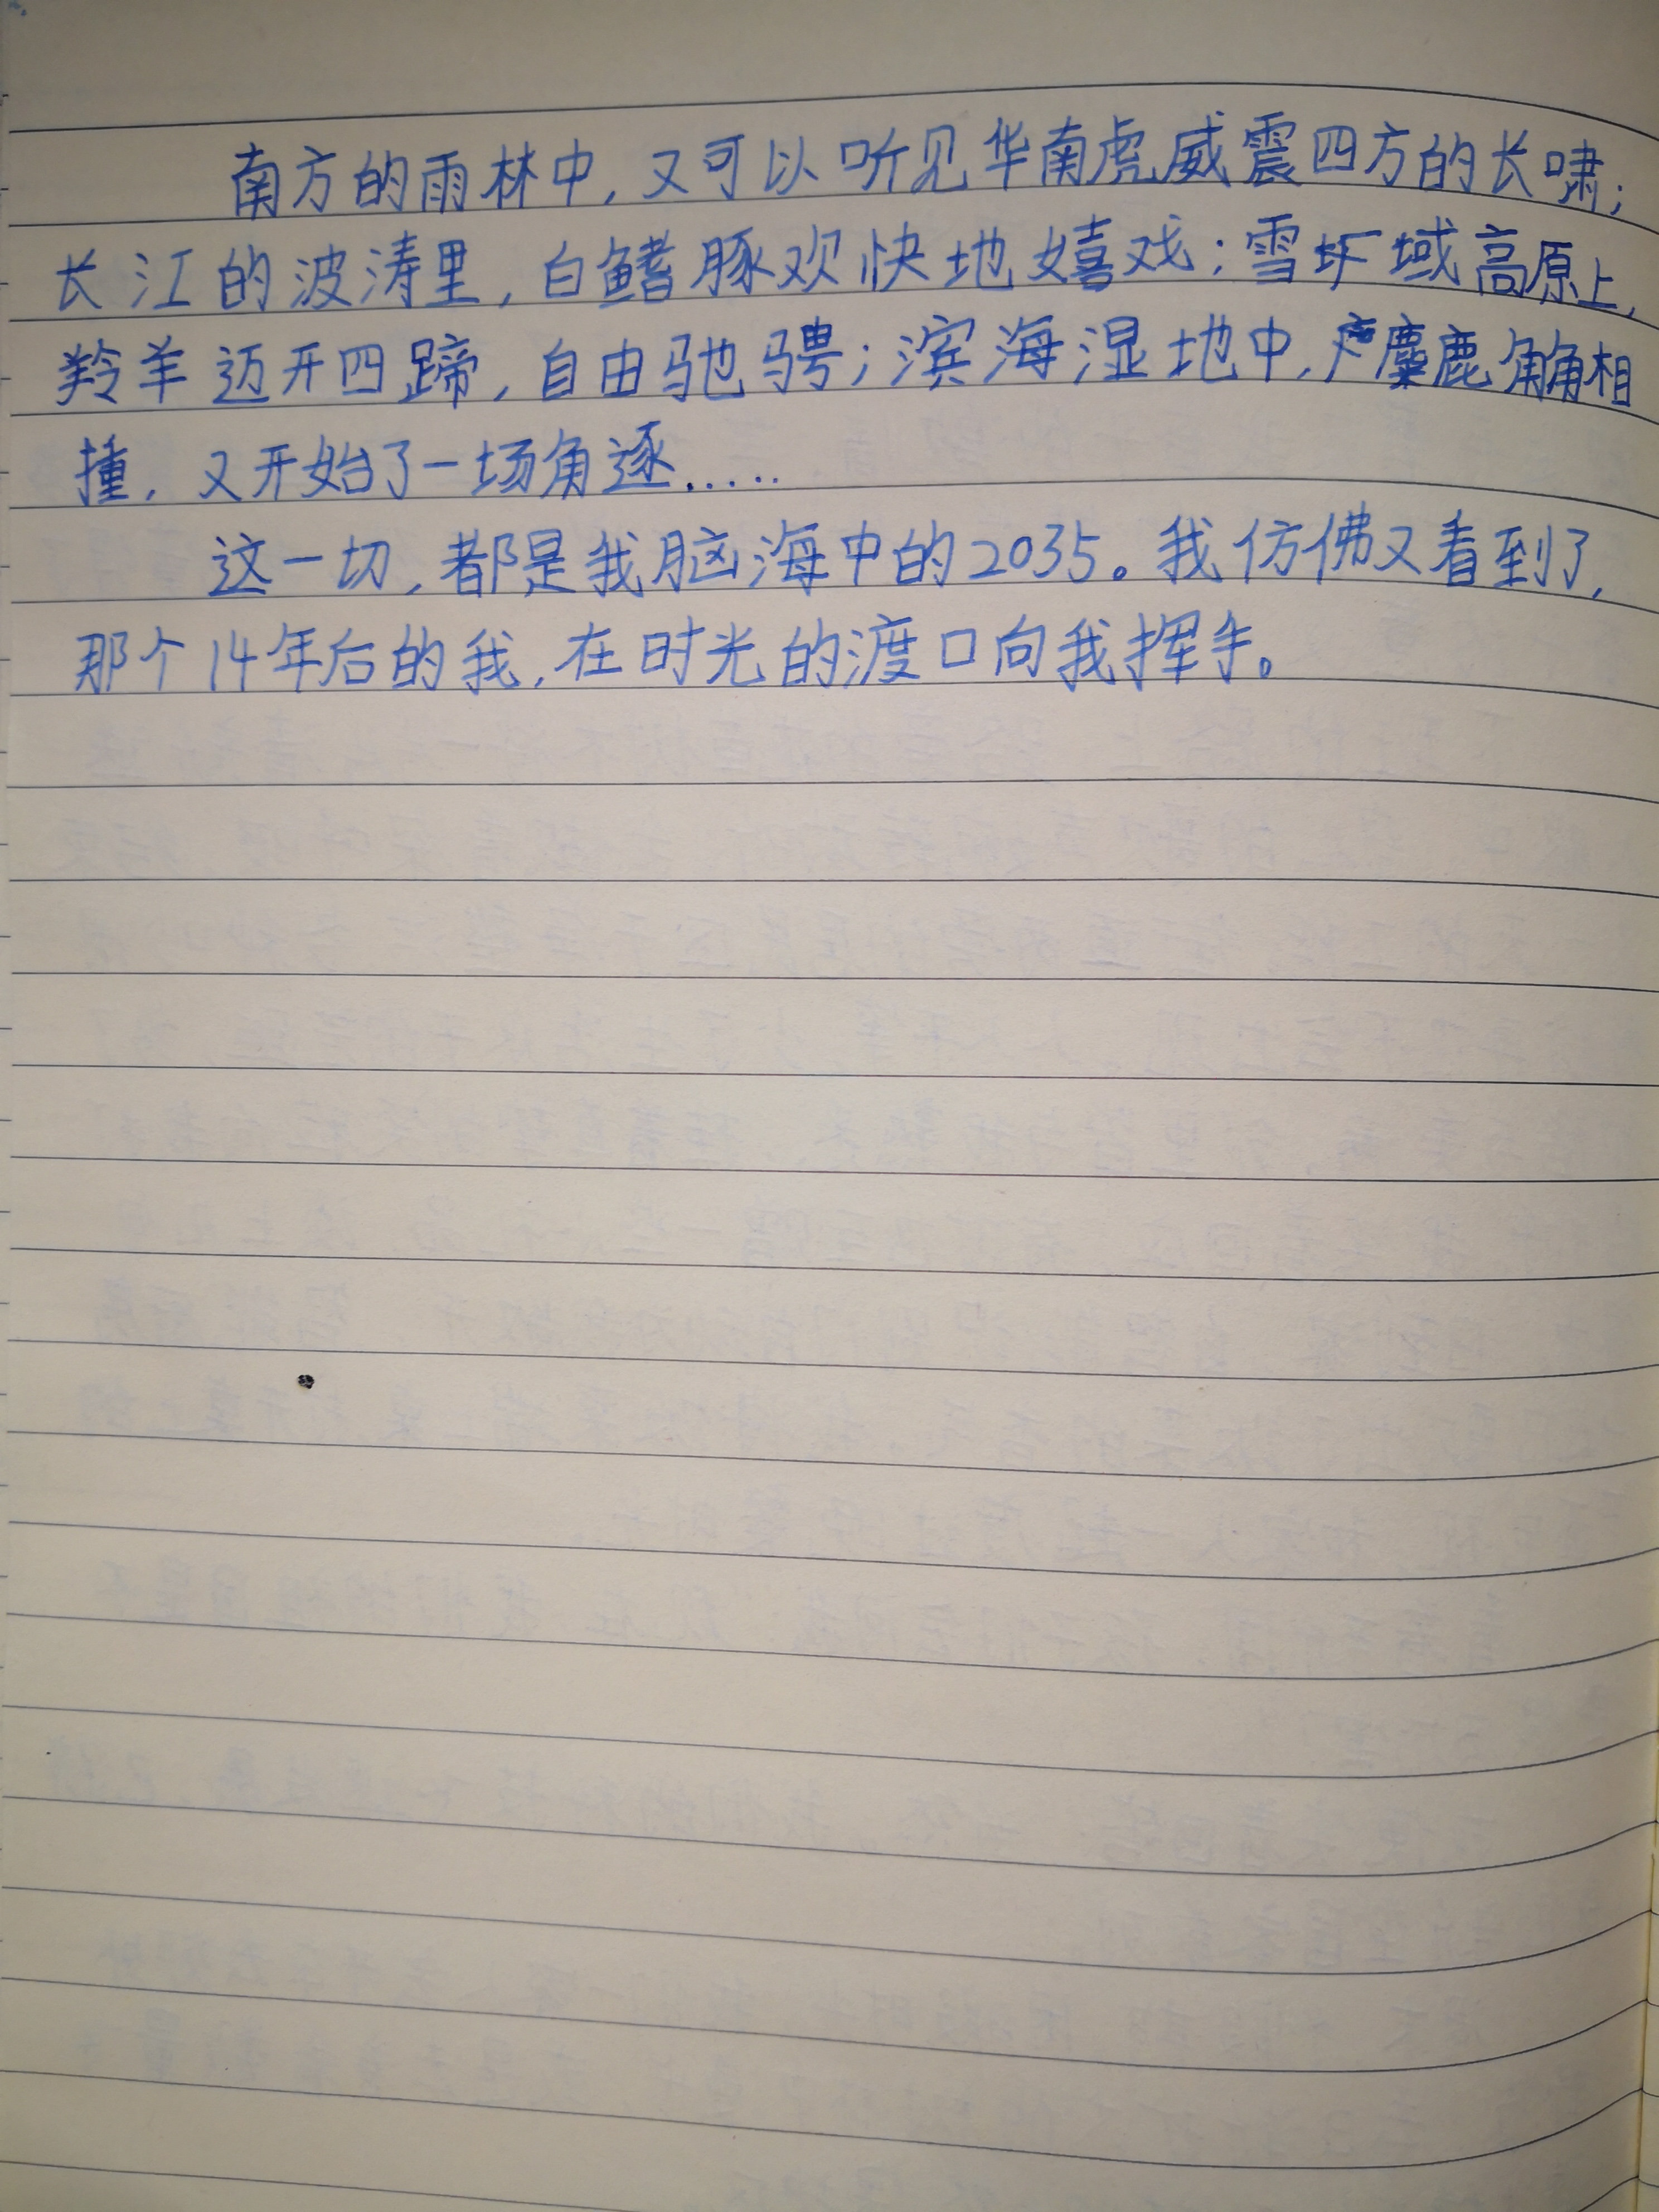 南方的雨林中,又可以听见华南虎威震四方的长啸;
长江的波涛里,白鳍豚欢快地嬉戏;雪域高原上,
羚羊迈开四蹄,自由驰骋;滨海湿地中,麋鹿角角相
撞,又开始了一场角逐.....
这一切,都是我脑海中的2035。我仿佛又看到了,
那个14年后的我,在时光的渡口向我挥手。